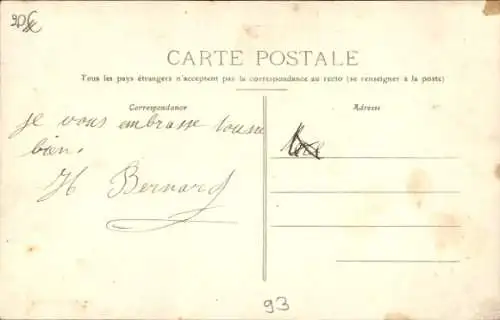 CARTE POSTALE
Tous les pays étrangers n'acceptent pas la correspondance au recto (se renseigner à la poste)
Correspondance
Adresse
je vous embrasse tous
bien.
H Bernard
93